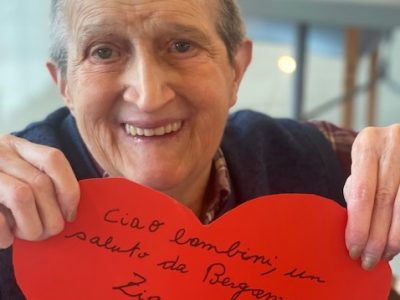 Ciao bambini, un
saluto da Bergam
Zia